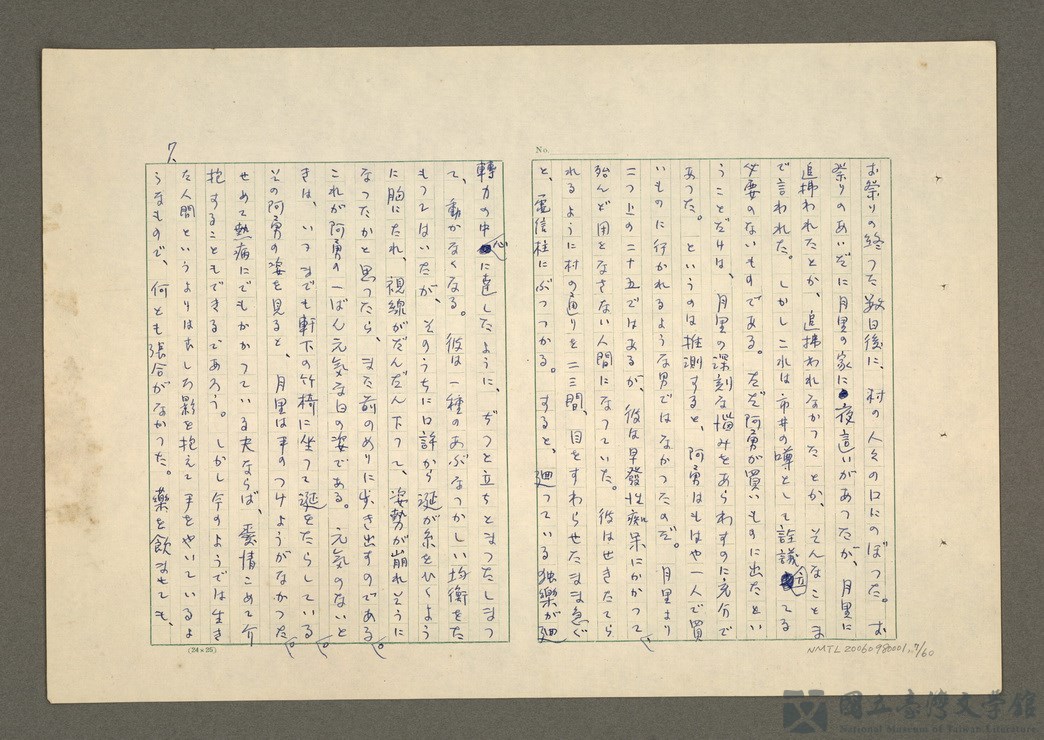 No.
お祭りの終つた数日後に、村の人々の口にのぼつた。お
祭りのあいだに月里の家に夜這いがあつたが、月里に
追拂われたとか、追拂われなかつたとか、そんなことま
で言われた。しかしこれは市井の噂として詮議立てる
必要のないものである。ただ阿勇が買いものに出たとい
うことだけは、月里の深刻な悩みをあらわすのに充分で
あつた。というのは推測すると、阿勇はもはや一人で買
いものに行かれるような男ではなかつたのだ。月里より
二つ上の二十五ではあるが、彼は早發性痴呆にかかつて
殆んど用をなさない人間になつていた。彼はせきたてら
れるように村の通りを二三間、目をすわらせたまま急ぐ
と、電信柱にぶつつかる。すると、廻つている独樂が廻
轉力の中心に達したように、ぢつと立ちどまつたしまつ
て、動かなくなる。彼は一種のあぶなつかしい均衡をた
もつてはいたが、そのうちに口許から涎が糸をひくよう
に胸にたれ、視線がだんだん下つて、姿勢が崩れそうに
なつたかと思つたら、また前のめりに歩き出すのである。
これが阿勇の一ばん元気な日の姿である。元気のないと
きは、いつまでも軒下の竹椅に坐つて涎をたらしている。
その阿勇の姿を見ると、月里は手のつけようがなかつた。
せめて熱病にでもかかつている夫ならば、裏情こめて介
抱することもできるであろう。しかし今のようでは生き
た人間というよりはむしろ影を抱えて手をやいているよ
うなもので、何とも張合がなかつた。藥を飲ませても、
7.
(24×25)
NMTL20060980001,7/60
國立臺灣文學館
National Museum of Taiwan Literature